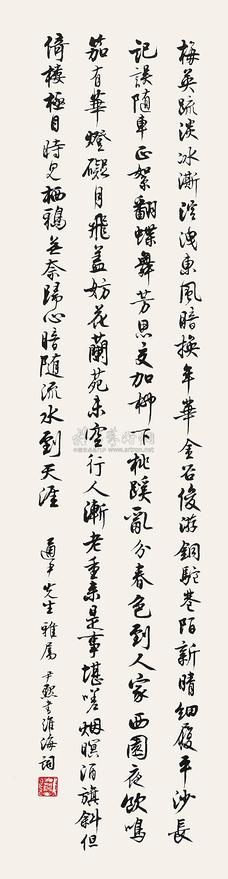 梅英疏淡冰澌溶洩東風暗換年華金谷俊游銅駝巷陌新晴細履平沙長
記誤隨車正絮翻蝶舞芳思交加柳下桃蹊亂分春色到人家西園夜飲鳴
笳有華燈礙月飛蓋妨花蘭苑未空行人漸老重來是事堪嗟烟暝酒旗斜但
倚樓極目時見栖鴉無奈歸心暗隨流水到天涯
適中先生雅属 尹默書淮海詞